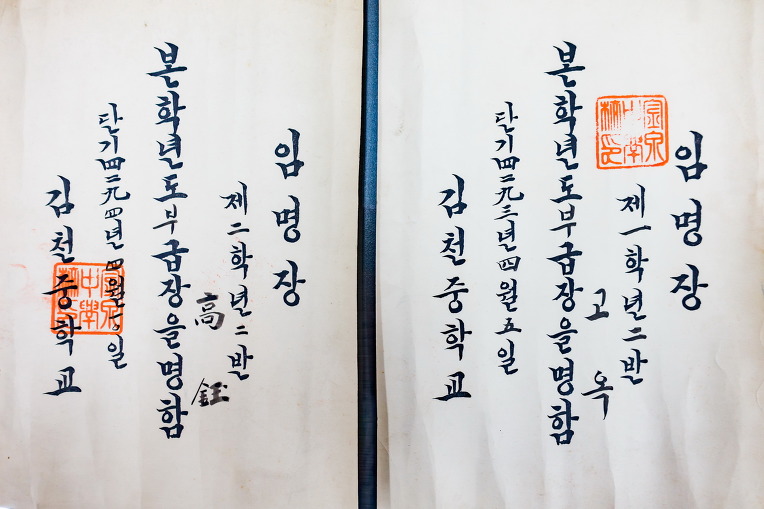 임명장
제一학년二반
고옥
본학년도부급장을명함
단기四二九三년四월五일
김천중학교
金泉中學校印
임명장
제二학년二반
高鈺
본학년도부급장을명함
단기四二九四년四월 일
김천중학교